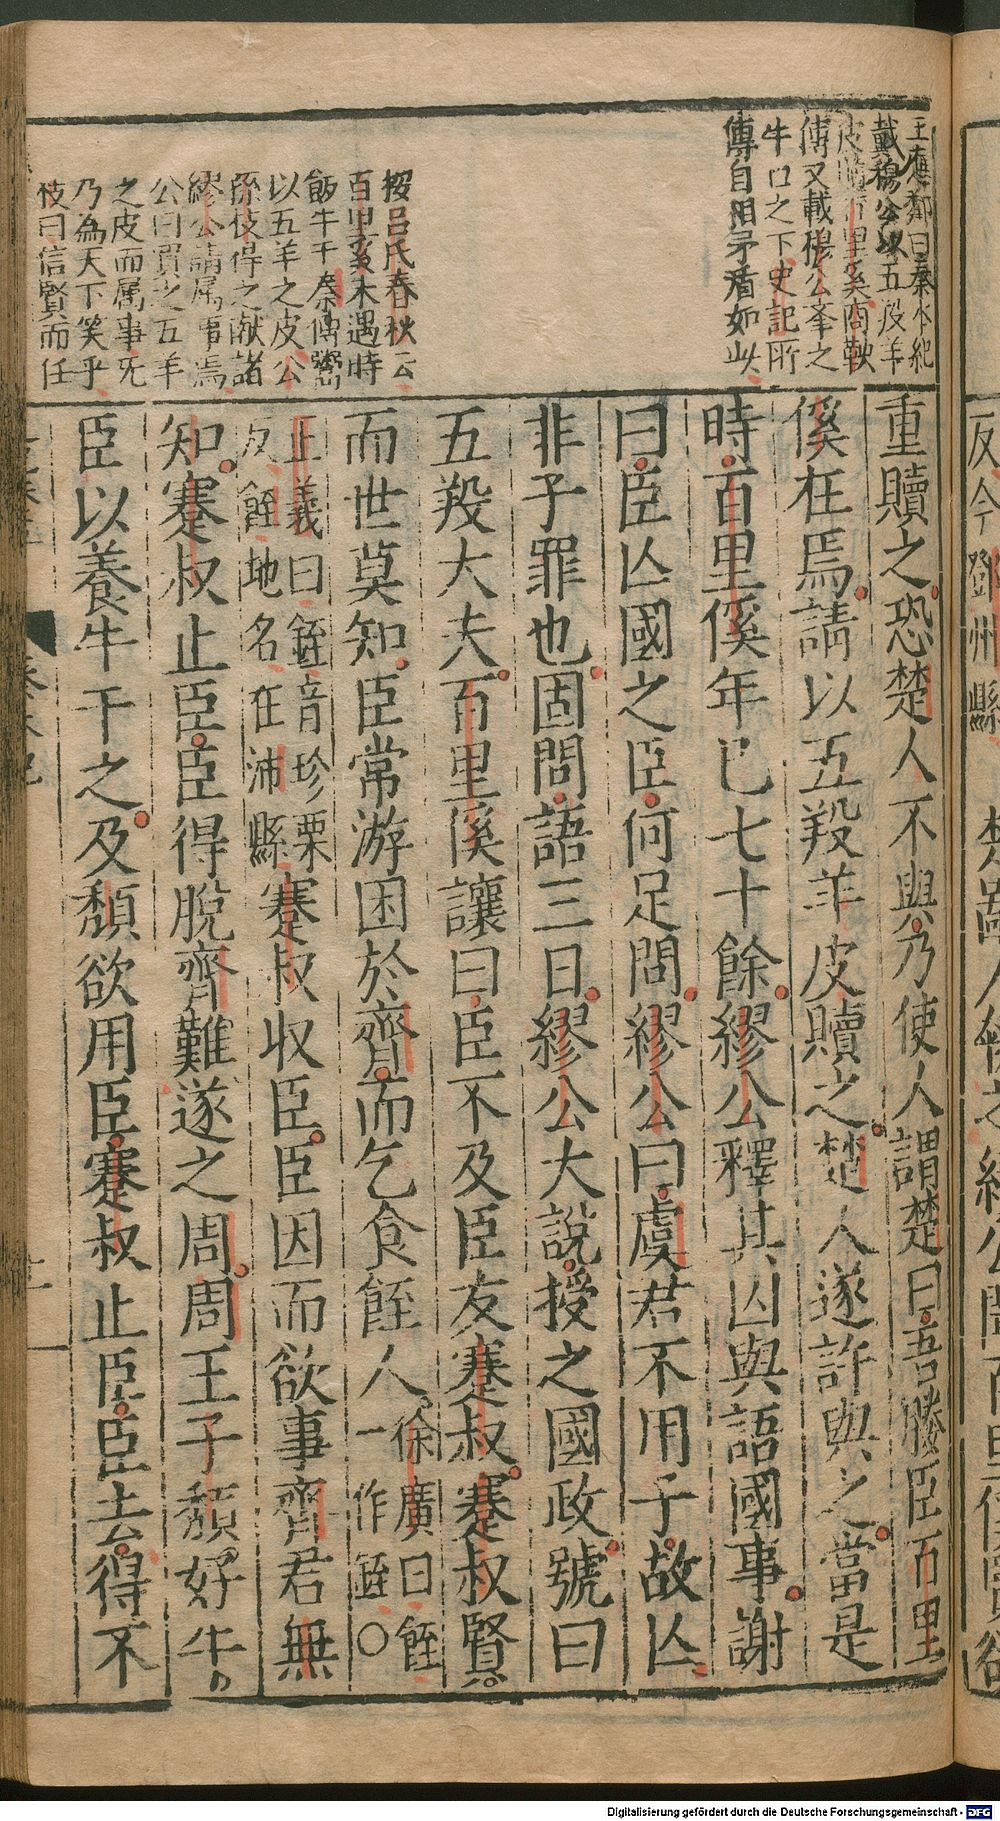 王應鄰曰秦本紀
載穆公以五羖羊
皮贖百里奚商鞅
傳又載穆公舉之
牛口之下史記所
傳自相矛盾如此
按呂氏春秋云
百里奚未遇時
飯牛于秦傳鬻
以五羊之皮公
孫伎得之献諸
繆公請属事焉
公曰買之五羊
之皮而属事旡
乃為天下笑乎
伎曰信賢而任
重贖之恐楚人不與乃使人謂楚曰吾媵臣百里
傒在焉請以五羖羊皮贖之楚人遂許與之當是
時百里傒年已七十餘繆公釋其囚與語國事謝
曰臣亾國之臣何足問繆公曰虞君不用子故亾
非子罪也固問語三日繆公大說授之國政號曰
五羖大夫百里傒讓曰臣不及臣友蹇叔蹇叔賢
而世莫知臣常游困於齊而乞食䬹人徐廣曰䬹一作銍○
正義曰銍音珍栗反䬹地名在沛縣蹇叔収臣臣因而欲事齊君無
知蹇叔止臣臣得脫齊難遂之周周王子頹好牛
臣以養牛干之及頹欲用臣蹇叔止臣臣去得不
反今鄧州縣
Digitalisierung gefördert durch die Deutsche Forschungsgemeinschaft - DFG